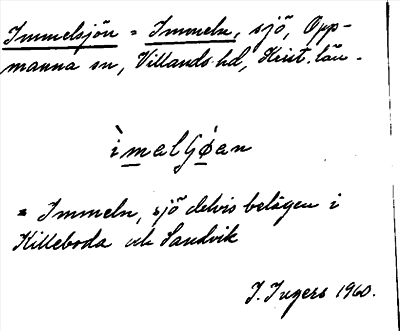 Immelsjön = Immeln, sjö, Opp-
manna sn, Villands hd, Krist. län.
ìmalʃøan
= Immeln, sjö delvis belägen i
Killeboda och Sandvik
I. Ingers 1960.